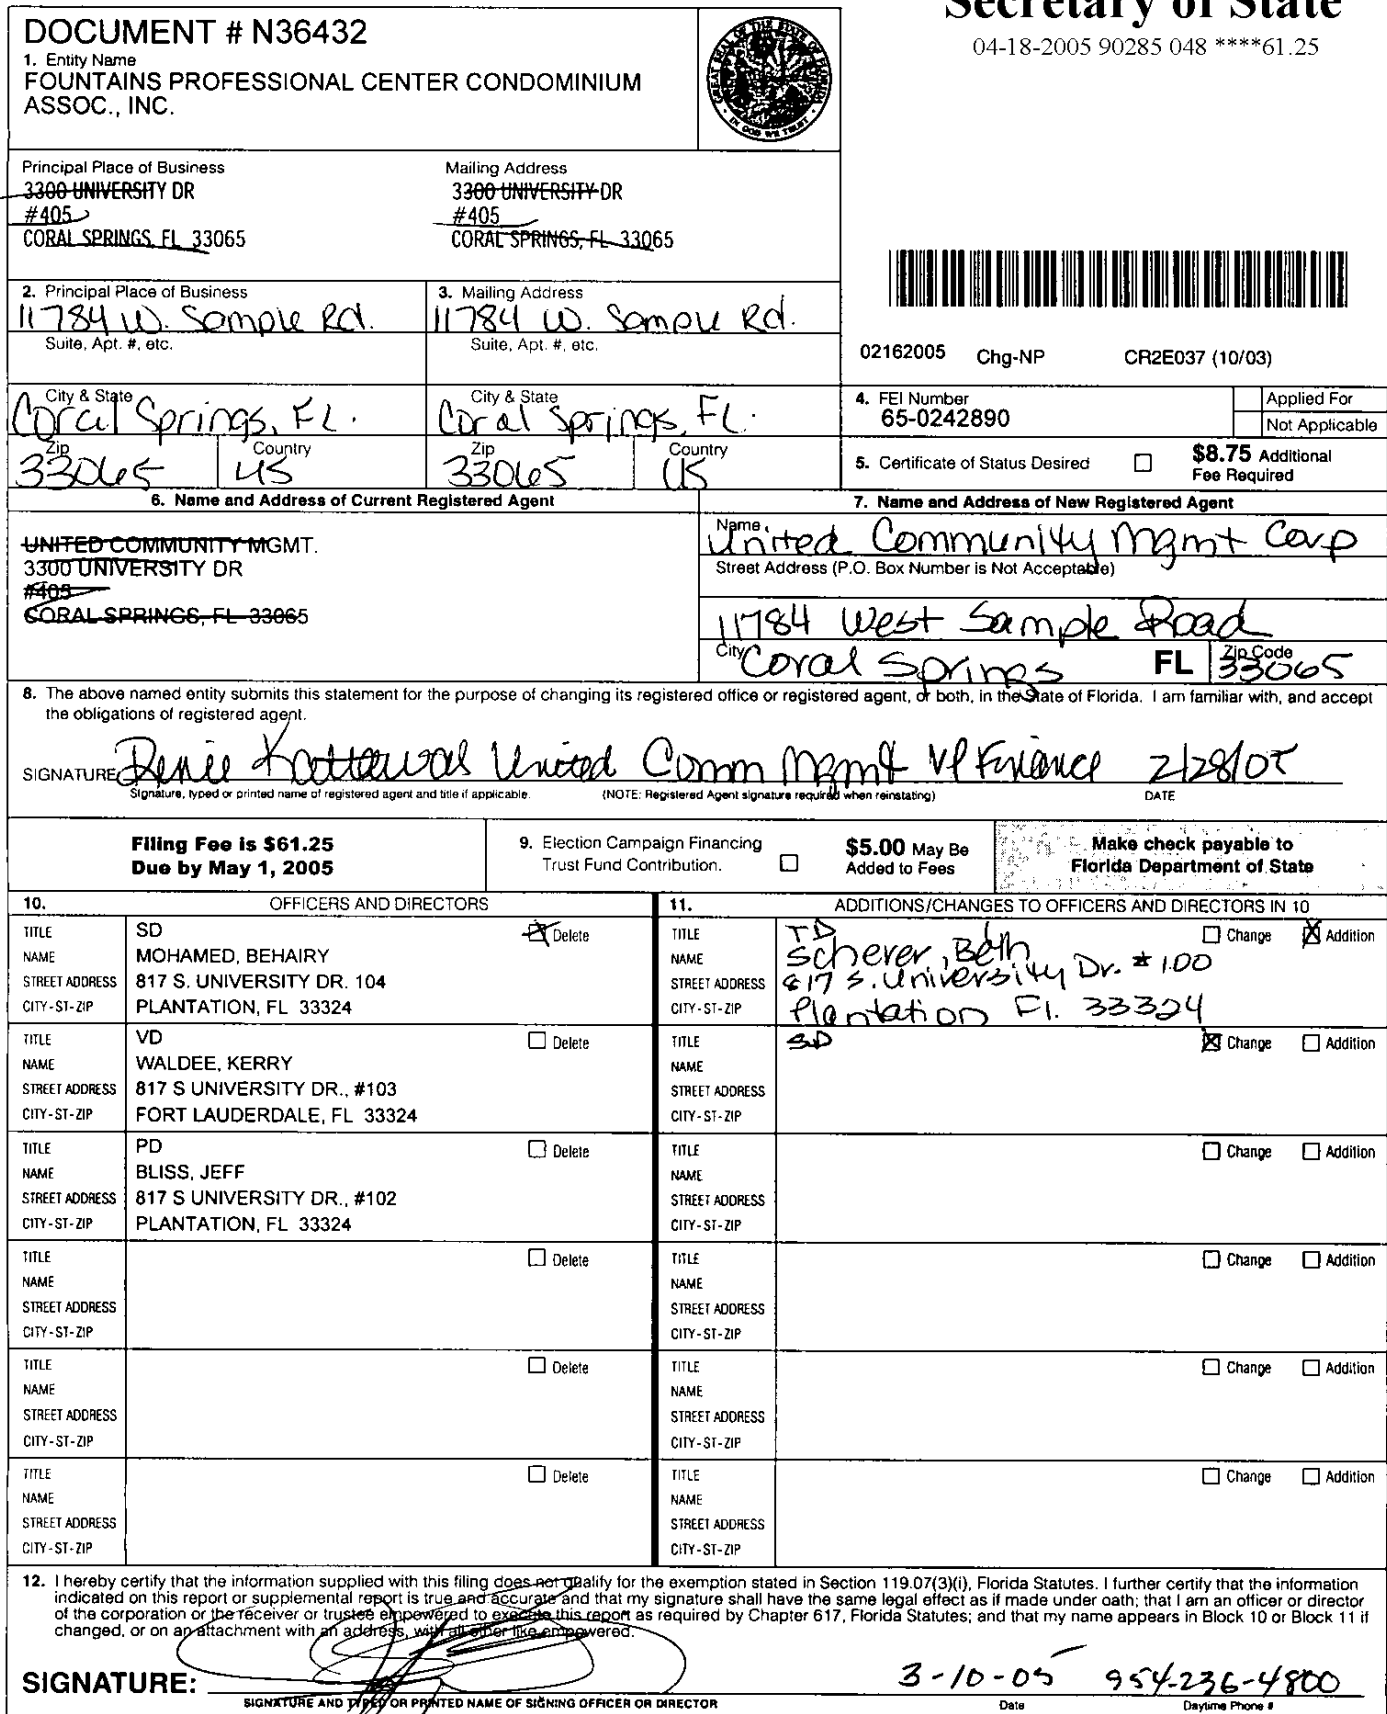 Secretary of State
04-18-2005 90285 048 ****61.25
DOCUMENT # N36432
1. Entity Name
FOUNTAINS PROFESSIONAL CENTER CONDOMINIUM
ASSOC., INC.
GREAT SEAL OF THE STATE OF FLORIDA
IN GOD WE TRUST
Principal Place of Business
3300 UNIVERSITY DR
#405
CORAL SPRINGS, FL 33065
Mailing Address
3300 UNIVERSITY DR
#405
CORAL SPRINGS, FL 33065
2. Principal Place of Business
11784 W. Sample Rd.
Suite, Apt. #, etc.
City & State
Coral Springs, FL.
Zip
33065
Country
US
3. Mailing Address
11784 W. Sample Rd.
Suite, Apt. #, etc.
City & State
Coral Springs, FL.
Zip
33065
Country
US
02162005 Chg-NP CR2E037 (10/03)
4. FEI Number
65-0242890
Applied For
Not Applicable
5. Certificate of Status Desired
$8.75 Additional
Fee Required
6. Name and Address of Current Registered Agent
UNITED COMMUNITY MGMT.
3300 UNIVERSITY DR
#405
CORAL SPRINGS, FL 33065
7. Name and Address of New Registered Agent
Name
United Community Mgmt Corp
Street Address (P.O. Box Number is Not Acceptable)
11784 West Sample Road
City Coral Springs FL Zip Code 33065
8. The above named entity submits this statement for the purpose of changing its registered office or registered agent, or both, in the State of Florida. I am familiar with, and accept
the obligations of registered agent.
SIGNATURE Renee United Comm Mgmt VP Finance 2/28/05
Signature, typed or printed name of registered agent and title if applicable. (NOTE: Registered Agent signature required when reinstating) DATE
Filing Fee is $61.25
Due by May 1, 2005
9. Election Campaign Financing
Trust Fund Contribution.
$5.00 May Be
Added to Fees
Make check payable to
Florida Department of State
10. OFFICERS AND DIRECTORS
TITLE SD Delete
NAME MOHAMED, BEHAIRY
STREET ADDRESS 817 S. UNIVERSITY DR. 104
CITY-ST-ZIP PLANTATION, FL 33324
TITLE VD Delete
NAME WALDEE, KERRY
STREET ADDRESS 817 S UNIVERSITY DR., #103
CITY-ST-ZIP FORT LAUDERDALE, FL 33324
TITLE PD Delete
NAME BLISS, JEFF
STREET ADDRESS 817 S UNIVERSITY DR., #102
CITY-ST-ZIP PLANTATION, FL 33324
TITLE Delete
NAME
STREET ADDRESS
CITY-ST-ZIP
TITLE Delete
NAME
STREET ADDRESS
CITY-ST-ZIP
TITLE Delete
NAME
STREET ADDRESS
CITY-ST-ZIP
11. ADDITIONS/CHANGES TO OFFICERS AND DIRECTORS IN 10
TITLE TD Change Addition
NAME Scherer, Beth
STREET ADDRESS 817 S. University Dr. #100
CITY-ST-ZIP Plantation Fl. 33324
TITLE SD Change Addition
NAME
STREET ADDRESS
CITY-ST-ZIP
TITLE Change Addition
NAME
STREET ADDRESS
CITY-ST-ZIP
TITLE Change Addition
NAME
STREET ADDRESS
CITY-ST-ZIP
TITLE Change Addition
NAME
STREET ADDRESS
CITY-ST-ZIP
TITLE Change Addition
NAME
STREET ADDRESS
CITY-ST-ZIP
12. I hereby certify that the information supplied with this filing does not qualify for the exemption stated in Section 119.07(3)(i), Florida Statutes. I further certify that the information
indicated on this report or supplemental report is true and accurate and that my signature shall have the same legal effect as if made under oath; that I am an officer or director
of the corporation or the receiver or trustee empowered to execute this report as required by Chapter 617, Florida Statutes; and that my name appears in Block 10 or Block 11 if
changed, or on an attachment with an address, with all other like empowered.
SIGNATURE: 3-10-05 954-236-4800
SIGNATURE AND TYPED OR PRINTED NAME OF SIGNING OFFICER OR DIRECTOR Date Daytime Phone #